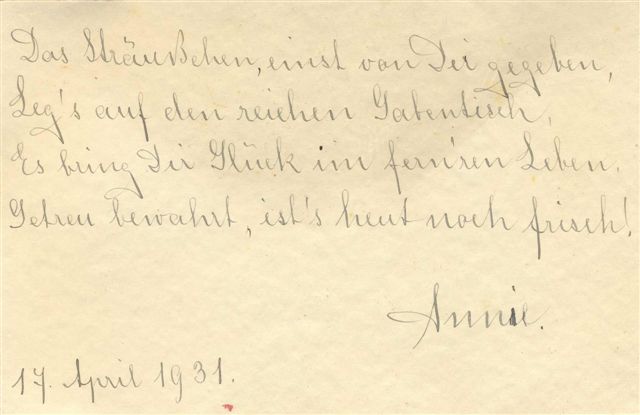 Das Sträußchen, einst von Dir gegeben,
Leg's auf den reichen Gabentisch,
Es bring Dir Glück im fern'ren Leben.
Getreu bewahrt, ist's heut noch frisch!
Annie.
17. April 1931.